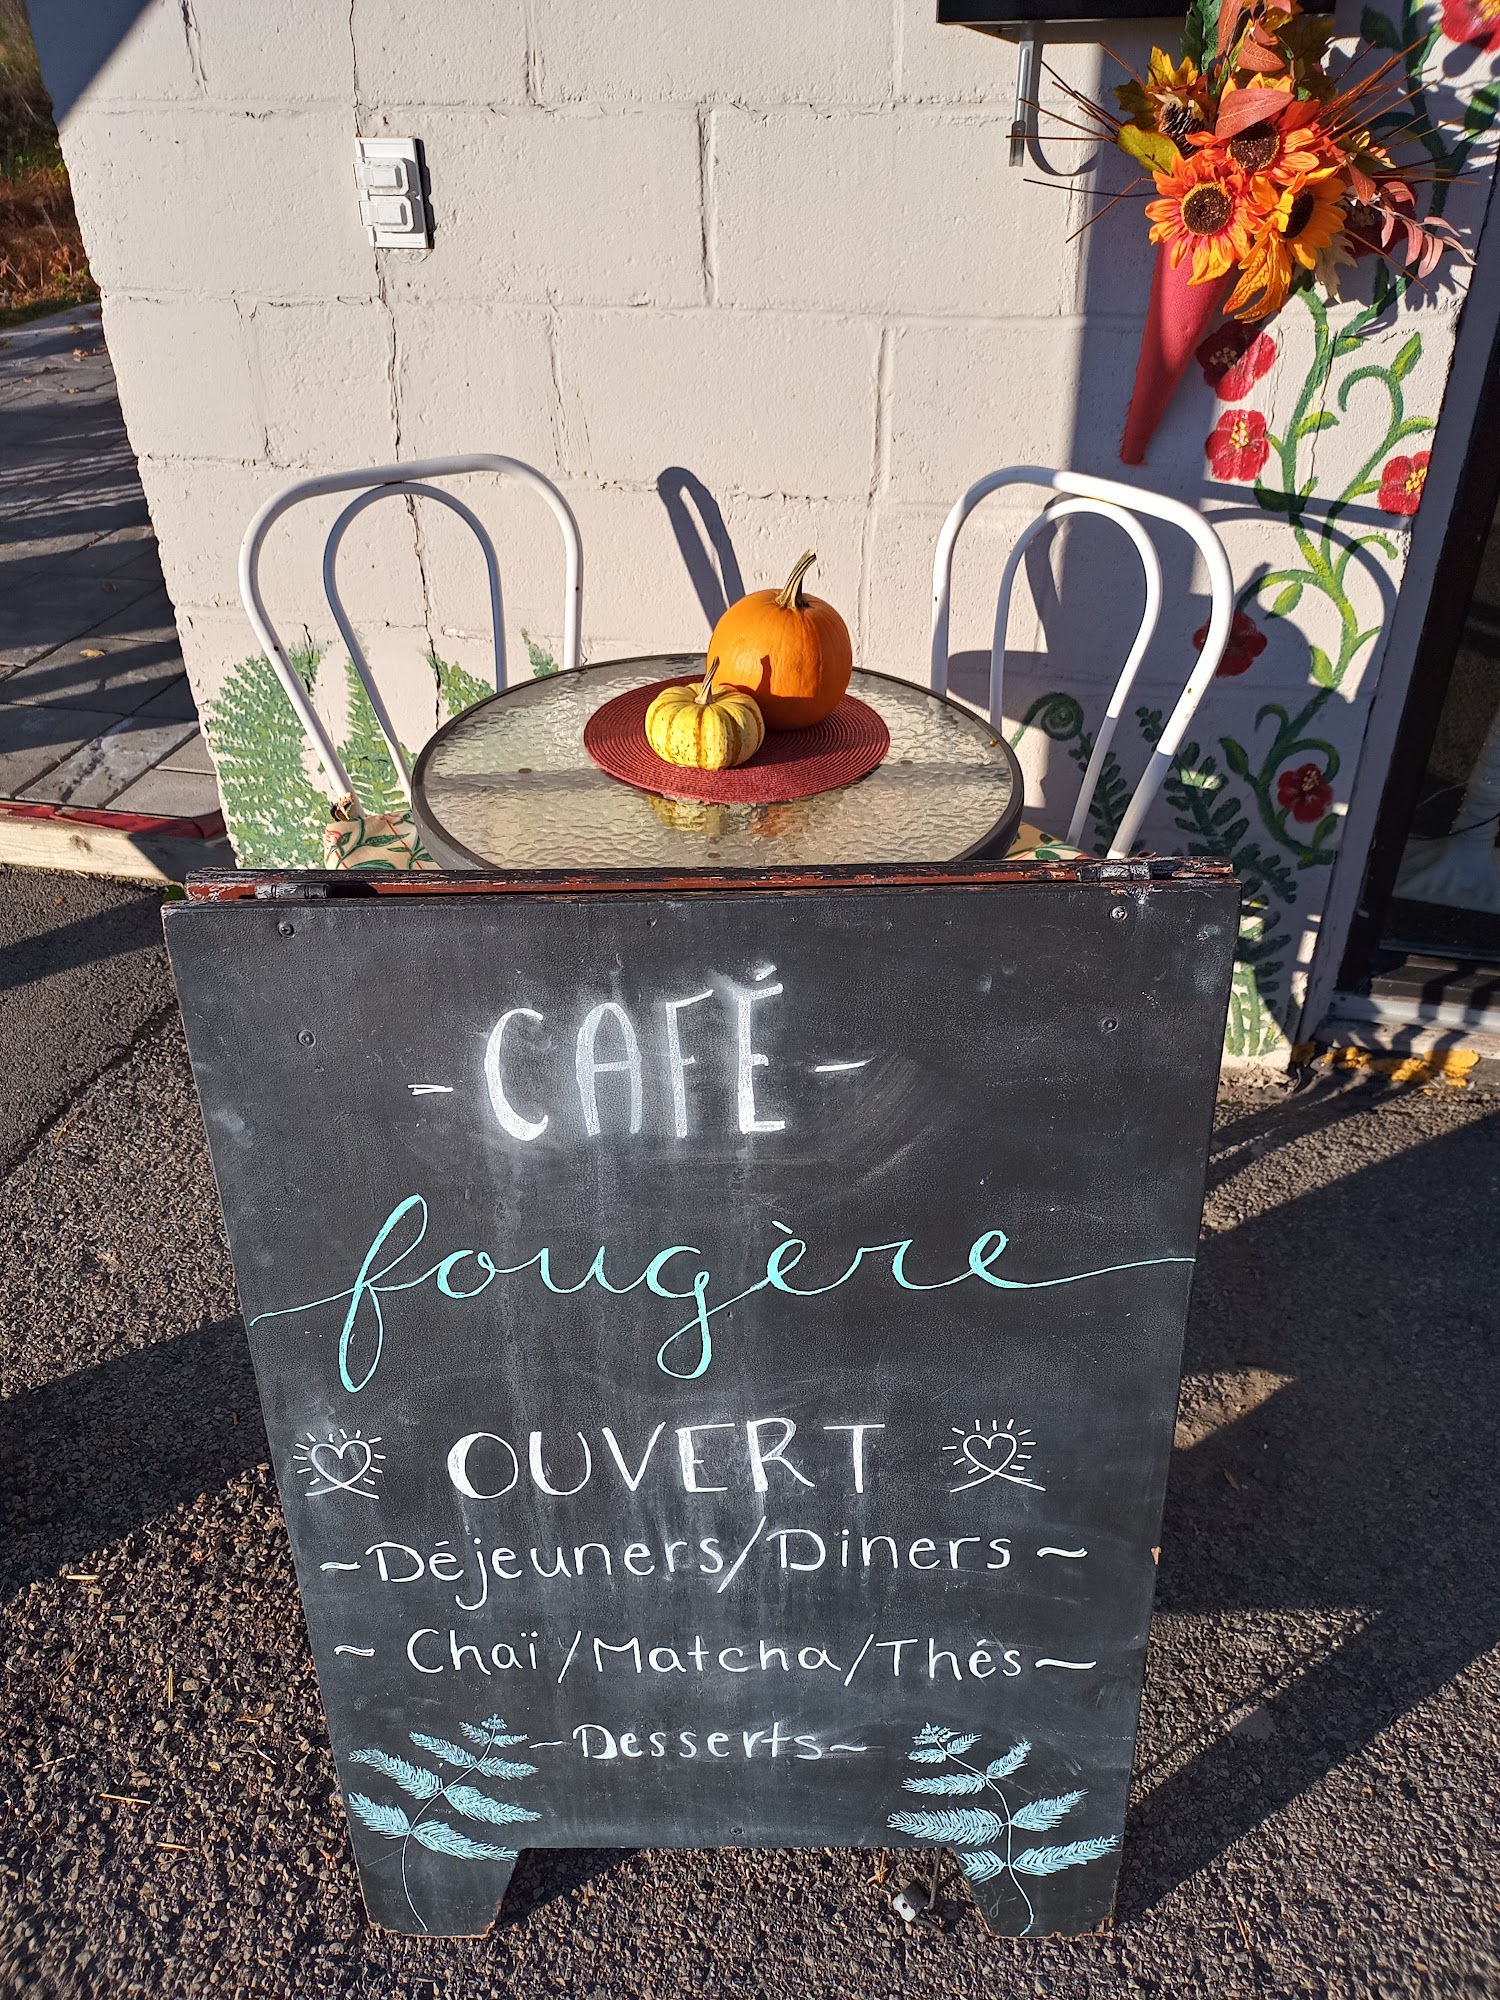 - CAFÉ -
fougère
OUVERT
~Déjeuners/Diners~
~ Chaï/Matcha/Thés~
~Desserts~